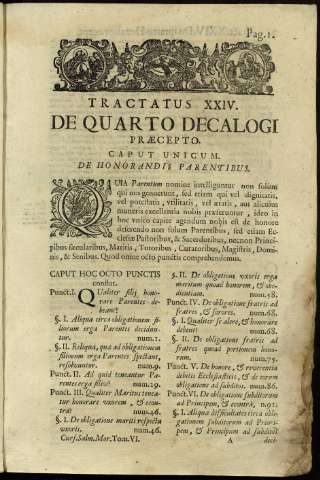 Pag. 1.
TRACTATUS XXIV.
DE QUARTO DECALOGI
PRÆCEPTO.
CAPUT UNICUM.
DE HONORANDIS PARENTIBUS.
QUIA Parentum nomine intelliguntur non solum
qui nos genuerunt, sed etiam qui vel dignitatis,
vel potestatis, vel ætatis, aut alicuius
muneris excellentia nobis præferuntur, ideo in
hoc unico capite agendum nobis est de honore
deferendo non solum Parentibus, sed etiam Ec-
clesiæ Pastoribus, & Sacerdotibus, necnon Princi-
pibus sæcularibus, Maritis, Tutoribus, Curatoribus, Magistris, Domi-
nis, & Senibus. Quod omne octo punctis comprehendemus.
CAPUT HOC OCTO PUNCTIS
constat.
Punct. I. Qualiter filij hono-
rare Parentes de-
beant?
§. I. Aliqua circa obligationem fi-
liorum erga Parentes decidun-
tur. num. 1.
§. II. Reliqua, quæ ad obligationem
filiorum erga Parentes spectant,
resolvuntur. num. 9.
Punct. II. Ad quid teneantur Pa-
rentes erga filios? num. 29.
Punct. III. Qualiter Maritus tenea-
tur honorare uxorem, & econ-
tra? num. 46.
§. I. De obligatione mariti respectu
uxoris. num. 46.
§. II. De obligatione uxoris erga
maritum quoad honorem, & obe-
dientiam. num. 58.
Punct. IV. De obligatione fratris ad
fratres, & sorores. num. 68.
§. I. Qualiter se alere, & honorare
debent? num. 68.
§. II. De obligatione fratris ad
fratres quoad portionem hono-
rum. num. 75.
Punct. V. De honore, & reverentia
debitis Ecclesiasticis, & de eorum
obligatione ad subditos. num. 86.
Punct. VI. De obligatione subditorum
ad Principem, & econtra, n. 92.
§. I. Aliqua difficultates circa obli-
gationem subditorum ad Princi-
pem, & Principum ad subditos
Curs. Salm. Mor. Tom. VI. A deci-